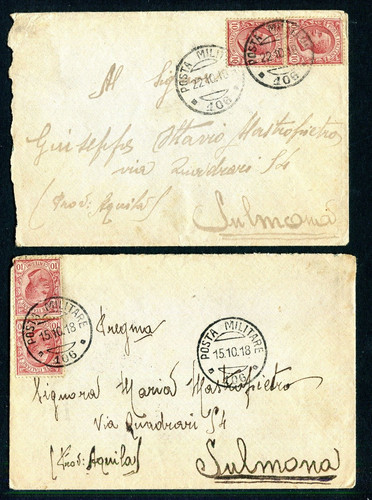 POSTA MILITARE
22.10.18
406
POSTA MILITARE
22.10
406
Al Sig
Giuseppe Ottavio Mastropietro
via Quadrari 54
(Prov: Aquila)
Sulmona
10
10
POSTA MILITARE
15.10.18
406
POSTA MILITARE
15.10.18
406
Pregma
Signora Maria Mastropietro
Via Quadrari 54
(Prov: Aquila)
Sulmona